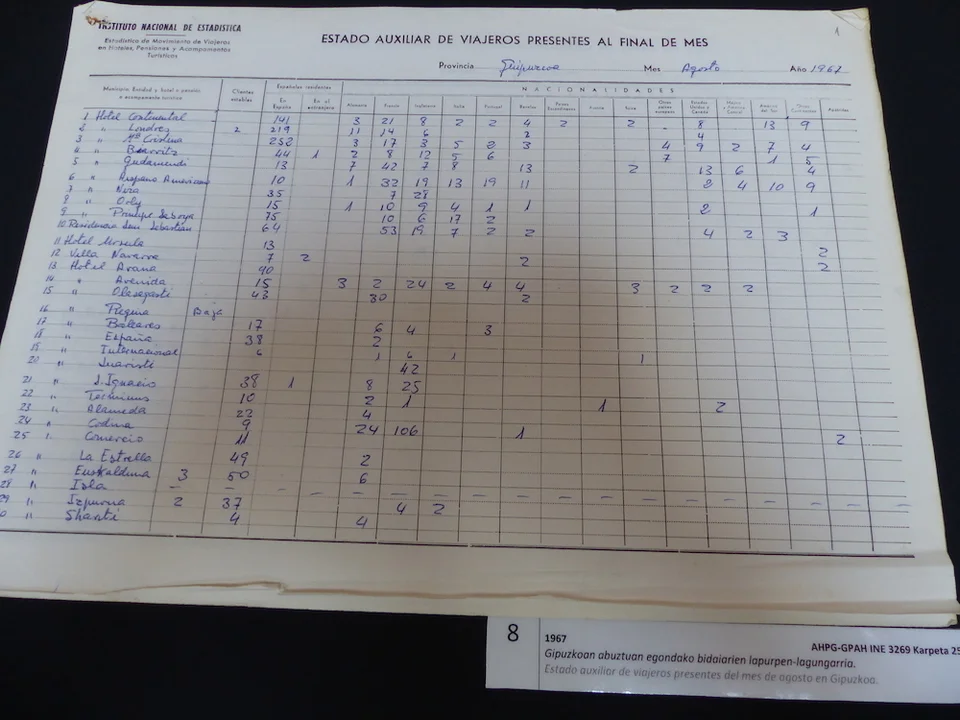 INSTITUTO NACIONAL DE ESTADISTICA
Estadística de Movimiento de Viajeros
en Hoteles, Pensiones y Acampamentos
Turísticos
ESTADO AUXILIAR DE VIAJEROS PRESENTES AL FINAL DE MES
1
Provincia Guipuzcoa Mes Agosto Año 1967
Clientes estables
Españoles residentes
En España
En el extranjero
NACIONALIDADES
Alemania Francia Inglaterra Italia Portugal
1 Hotel Continental 141 3 21 8 2 2 4 2 2 8 13 9
2 " Londres 2 219 11 14 6 2 4
3 " Mª Cristina 252 3 17 3 5 2 3 4 9 2 7 4
4 " Biarritz 44 1 2 8 12 5 6 7 1 5
5 " Gudamendi 13 7 42 7 8 13 2 13 6 4
6 " Hispano Americano 10 1 32 19 13 19 11 2 4 10 9
7 " Niza 35 7 28
8 " Orly 15 1 10 9 4 1 1 2 1
9 " Principe Saboya 75 10 6 17 2
10 Residencia San Sebastian 64 53 19 7 2 2 4 2 3
11 Hotel 13 2
12 Villa Navarra 7 2 2 2
13 Hotel Arana 90
14 " Avenida 15 3 2 24 2 4 4 3 2 2 2
15 " Olasagasti 43 30 2
16 " Regina Baja
17 " Baleares 17 6 4 3
18 " España 38 2
19 " Internacional 6 1 6 1 1
20 " 42
21 " S. Ignacio 38 1 8 25
22 " Terminus 10 2 1 1 2
23 " Alameda 22 4
24 " 9 24 106 1 2
25 " Comercio 11
26 " La Estrella 49 2
27 " Euskalduna 3 50 6
28 " Isla – – – – – – – – – – – – – – – –
29 " 2 37 4 2
" 4 4
8
1967
AHPG-GPAH INE 3269 Karpeta 25
Gipuzkoan abuztuan egondako bidaiarien lapurpen-lagungarria.
Estado auxiliar de viajeros presentes del mes de agosto en Gipuzkoa.